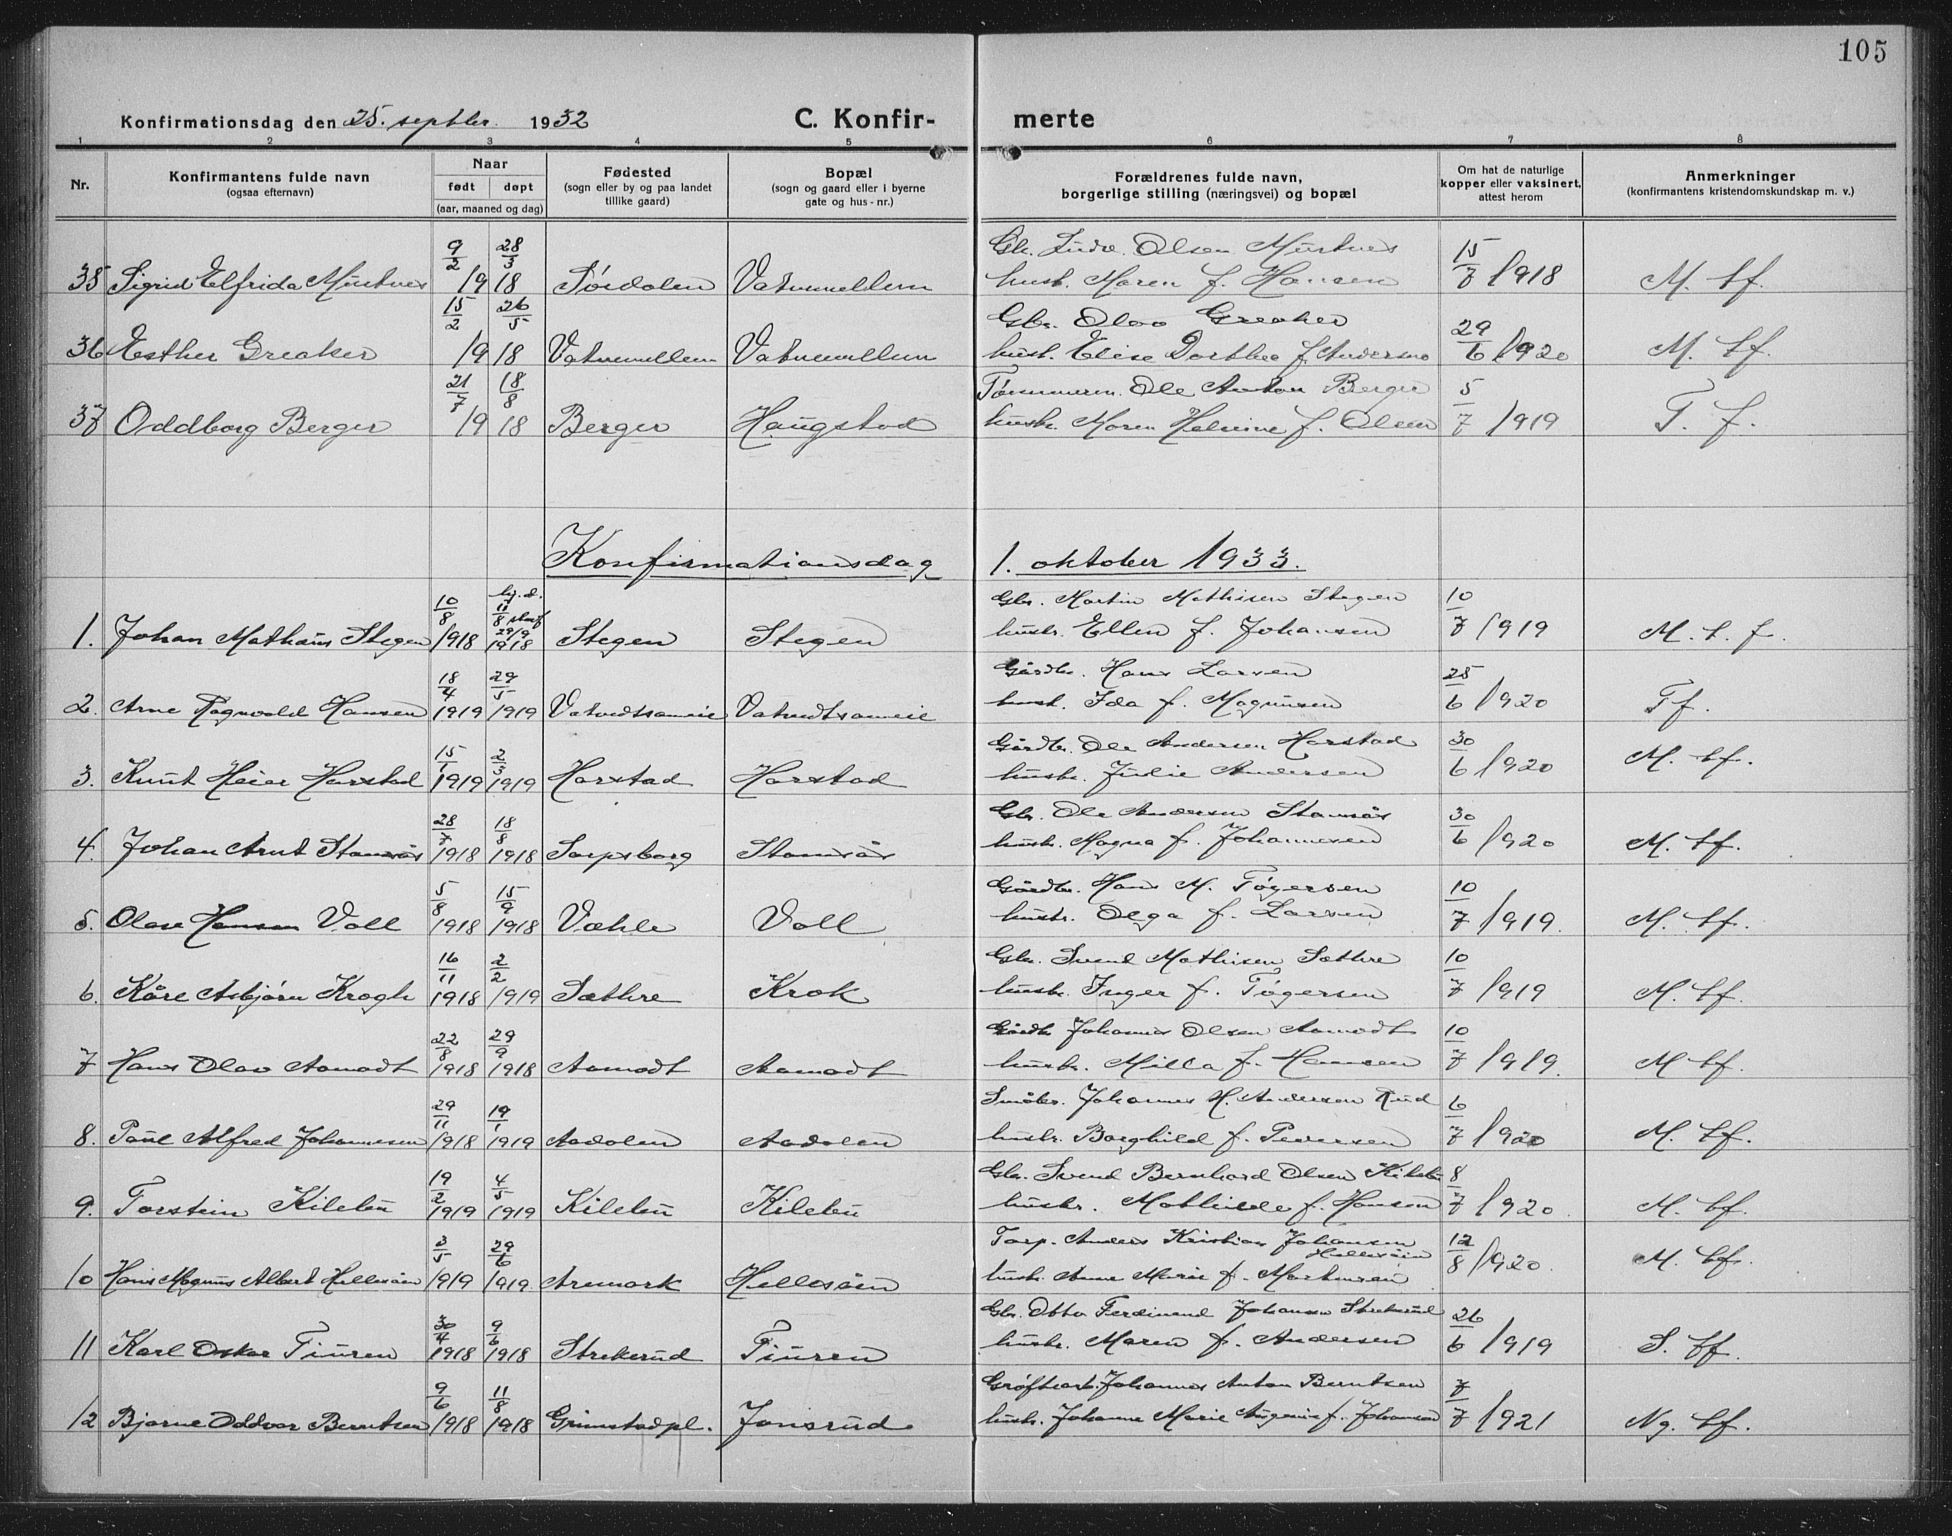 105
Konfirmationsdag den 25. septbr. 1932 C. Konfir- merte
1 2 3 4 5 6 7 8
Nr. Konfirmantens fulde navn (ogsaa efternavn) Naar født døpt (aar, maaned og dag) Fødested (sogn eller by og paa landet tillike gaard) Bopæl (sogn og gaard eller i byerne gate og hus-nr.) Forældrenes fulde navn, borgerlige stilling (næringsvei) og bopæl Om hat de naturlige kopper eller vaksinert, attest herom Anmerkninger (konfirmantens kristendomskundskap m. v.)
9/2 28/3 Gbr. Olsen 15/7
35 Sigrid Elfrida 1918 Vatnemellem hustr. Maren f. Hansen 1918 M. tf.
15/2 26/5 Gbr. Olav Greaker 29/6
36 Esther Greaker 1918 Vatnemellem Vatnemellem hustr. Elise Dorthea f. Andersen 1920 M. tf.
21/7 18/8 Ole Anton Berger 5
37 Oddborg Berger 1918 Berger Haugstad hustr. Maren f. Olsen 7/1919 T. f.
Konfirmationsdag 1. oktober 1933.
10/8 hj.d. 11/8 stadf. 29/9 Gbr. Martin Mathisen Stegen 10
1. Johan Mathæus Stegen 1918 1918 Stegen Stegen hustr. Ellen f. Johansen 7/1919 M. t. f.
18/4 29/5 Gårdbr. Hans Larsen 25
2. Arne Ragnvald Hansen 1919 1919 Vatvedtsameie Vatvedtsameie hustr. Ida f. Magnusen 6/1920 Tf.
15/1 2/3 Gårdbr. Ole Andersen Harstad 30
3. Knut Meier Harstad 1919 1919 Harstad Harstad hustr. Julie Andersen 6/1920 M. tf.
28/7 18/8 Gbr. Ole Andersen 30
4. Johan Arnt 1918 1918 Sarpsborg hustr. Magna f. Johannesen 6/1920 M. tf.
5/8 15/9 Gårdbr. Hans M. Tøgersen 10
5. Olase Hansen Voll 1918 1918 Væhle Voll hustr. Olga f. Larsen 7/1919. M. tf.
16/11 2/2 Gbr. Svend Mathisen Sæthre 10
6. Kåre Asbjørn Krogh 1918 1919 Sæthre Krok hustr. Inger f. Tøgersen 7/1919 M. tf.
22/8 29/9 Gårdbr. Johannes Olsen Aamodt 10
7 Hans Olav Aamodt 1918 1918 Aamodt Aamodt hustr. Milla f. Hansen 7/1919. M. tf.
29/11 19/1 Småbr. Johannes H. Andersen Rud 6
8. Paul Alfred Johannesen 1918 1919 Aadalen Aadalen hustr. Borghild f. Pedersen 7/1920 M. tf.
19/2 4/5 Gbr. Svend Bernhard Olsen Kilebu 8
9. Torstein Kilebu 1919 1919 Kilebu Kilebu hustr. Mathilde f. Hansen 7/1920. M. tf.
3/5 29/6 Torp. Anders Kristian Johansen Hellesøen 12
10 Hans Magnus Albert Hellesøen 1919 1919. Aremark Hellesøen hustr. Anne Marie f. Martinsen 8/1920. M. tf.
30/4 9/6 Gbr. Otto Ferdinand Johansen Strekerud 26
11 Karl Oskar Tiuren 1918 1918 Strekerud Tiuren hustr. Maren f. Andersen 6/1919 S. tf.
9/6 11/8 Grøftearb. Johannes Anton Berntsen 7
12 Bjarne Oddvar Berntsen 1918 1918 Grimstadpl. Jonsrud hustr. Johanne Marie f. Johansen 7/1921 Ng. tf.